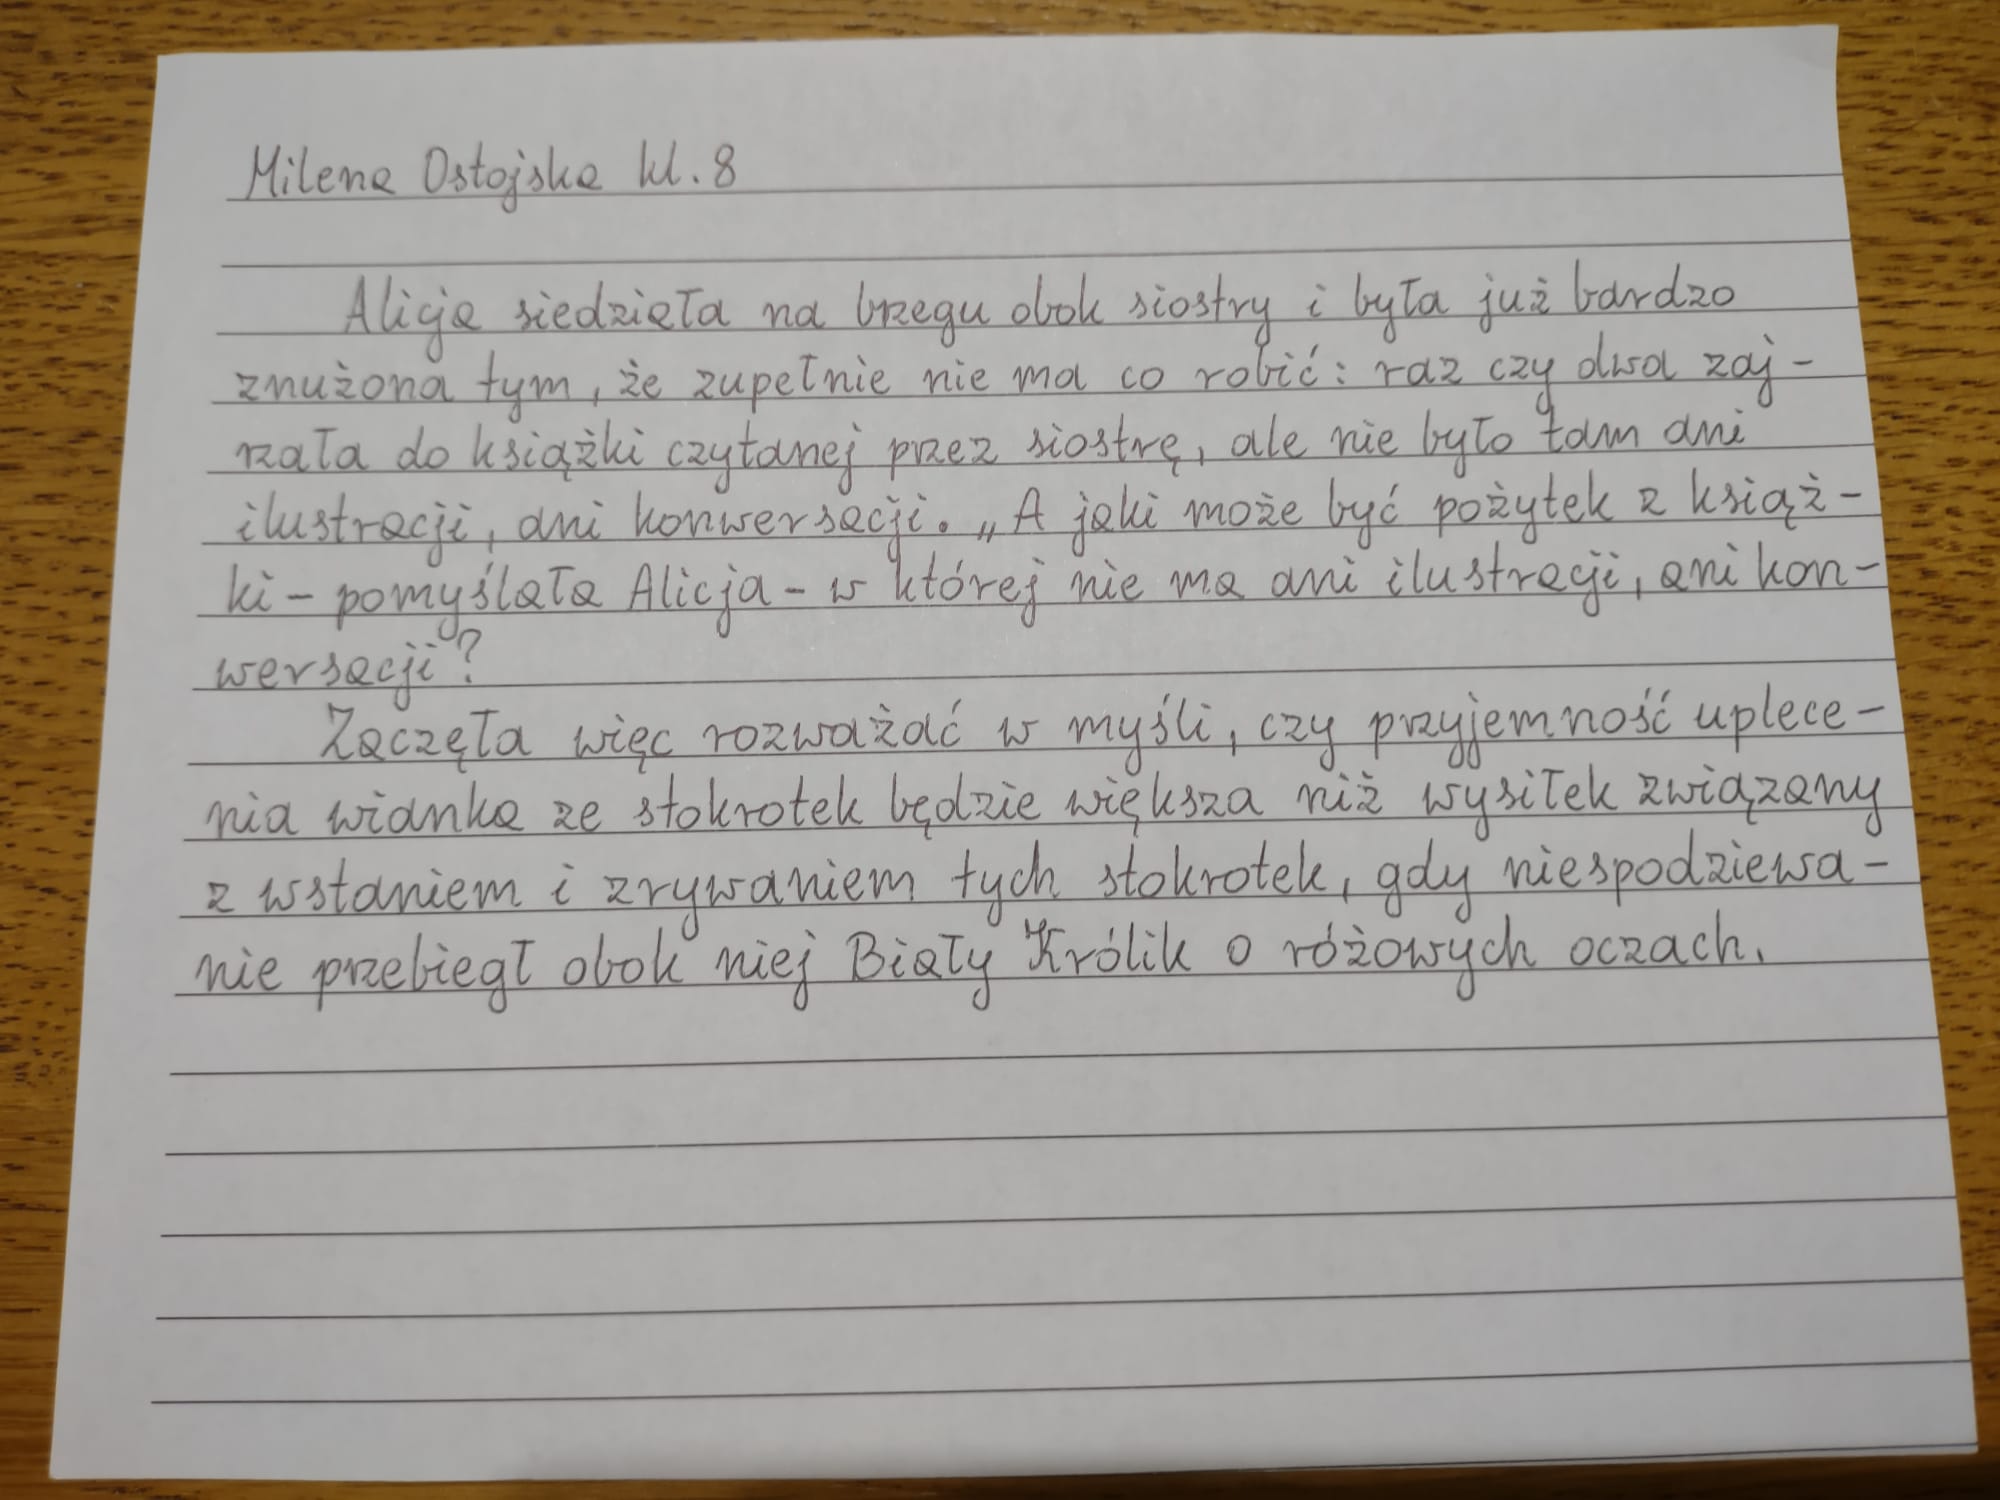 Milena Ostojska kl. 8
Alicja siedziała na brzegu obok siostry i była już bardzo
znużona tym, że zupełnie nie ma co robić: raz czy dwa zaj-
rzała do książki czytanej przez siostrę, ale nie było tam ani
ilustracji, ani konwersacji. „A jaki może być pożytek z książ-
ki - pomyślała Alicja - w której nie ma ani ilustracji, ani kon-
wersacji?
Zaczęła więc rozważać w myśli, czy przyjemność uplece-
nia wianka ze stokrotek będzie większa niż wysiłek związany
z wstaniem i zrywaniem tych stokrotek, gdy niespodziewa-
nie przebiegł obok niej Biały Królik o różowych oczach.